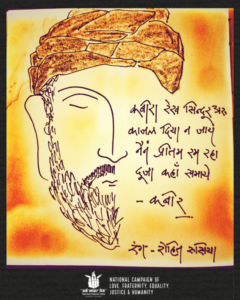 कबीरा रेख सिन्दूर अरु
काजल दिया न जाये
नैनं प्रीतम रम रहा
दूजा कहाँ समाये
- कबीर
रंग - रोहित रूसिया
NATIONAL CAMPAIGN OF
LOVE, FRATERNITY, EQUALITY,
JUSTICE & HUMANITY